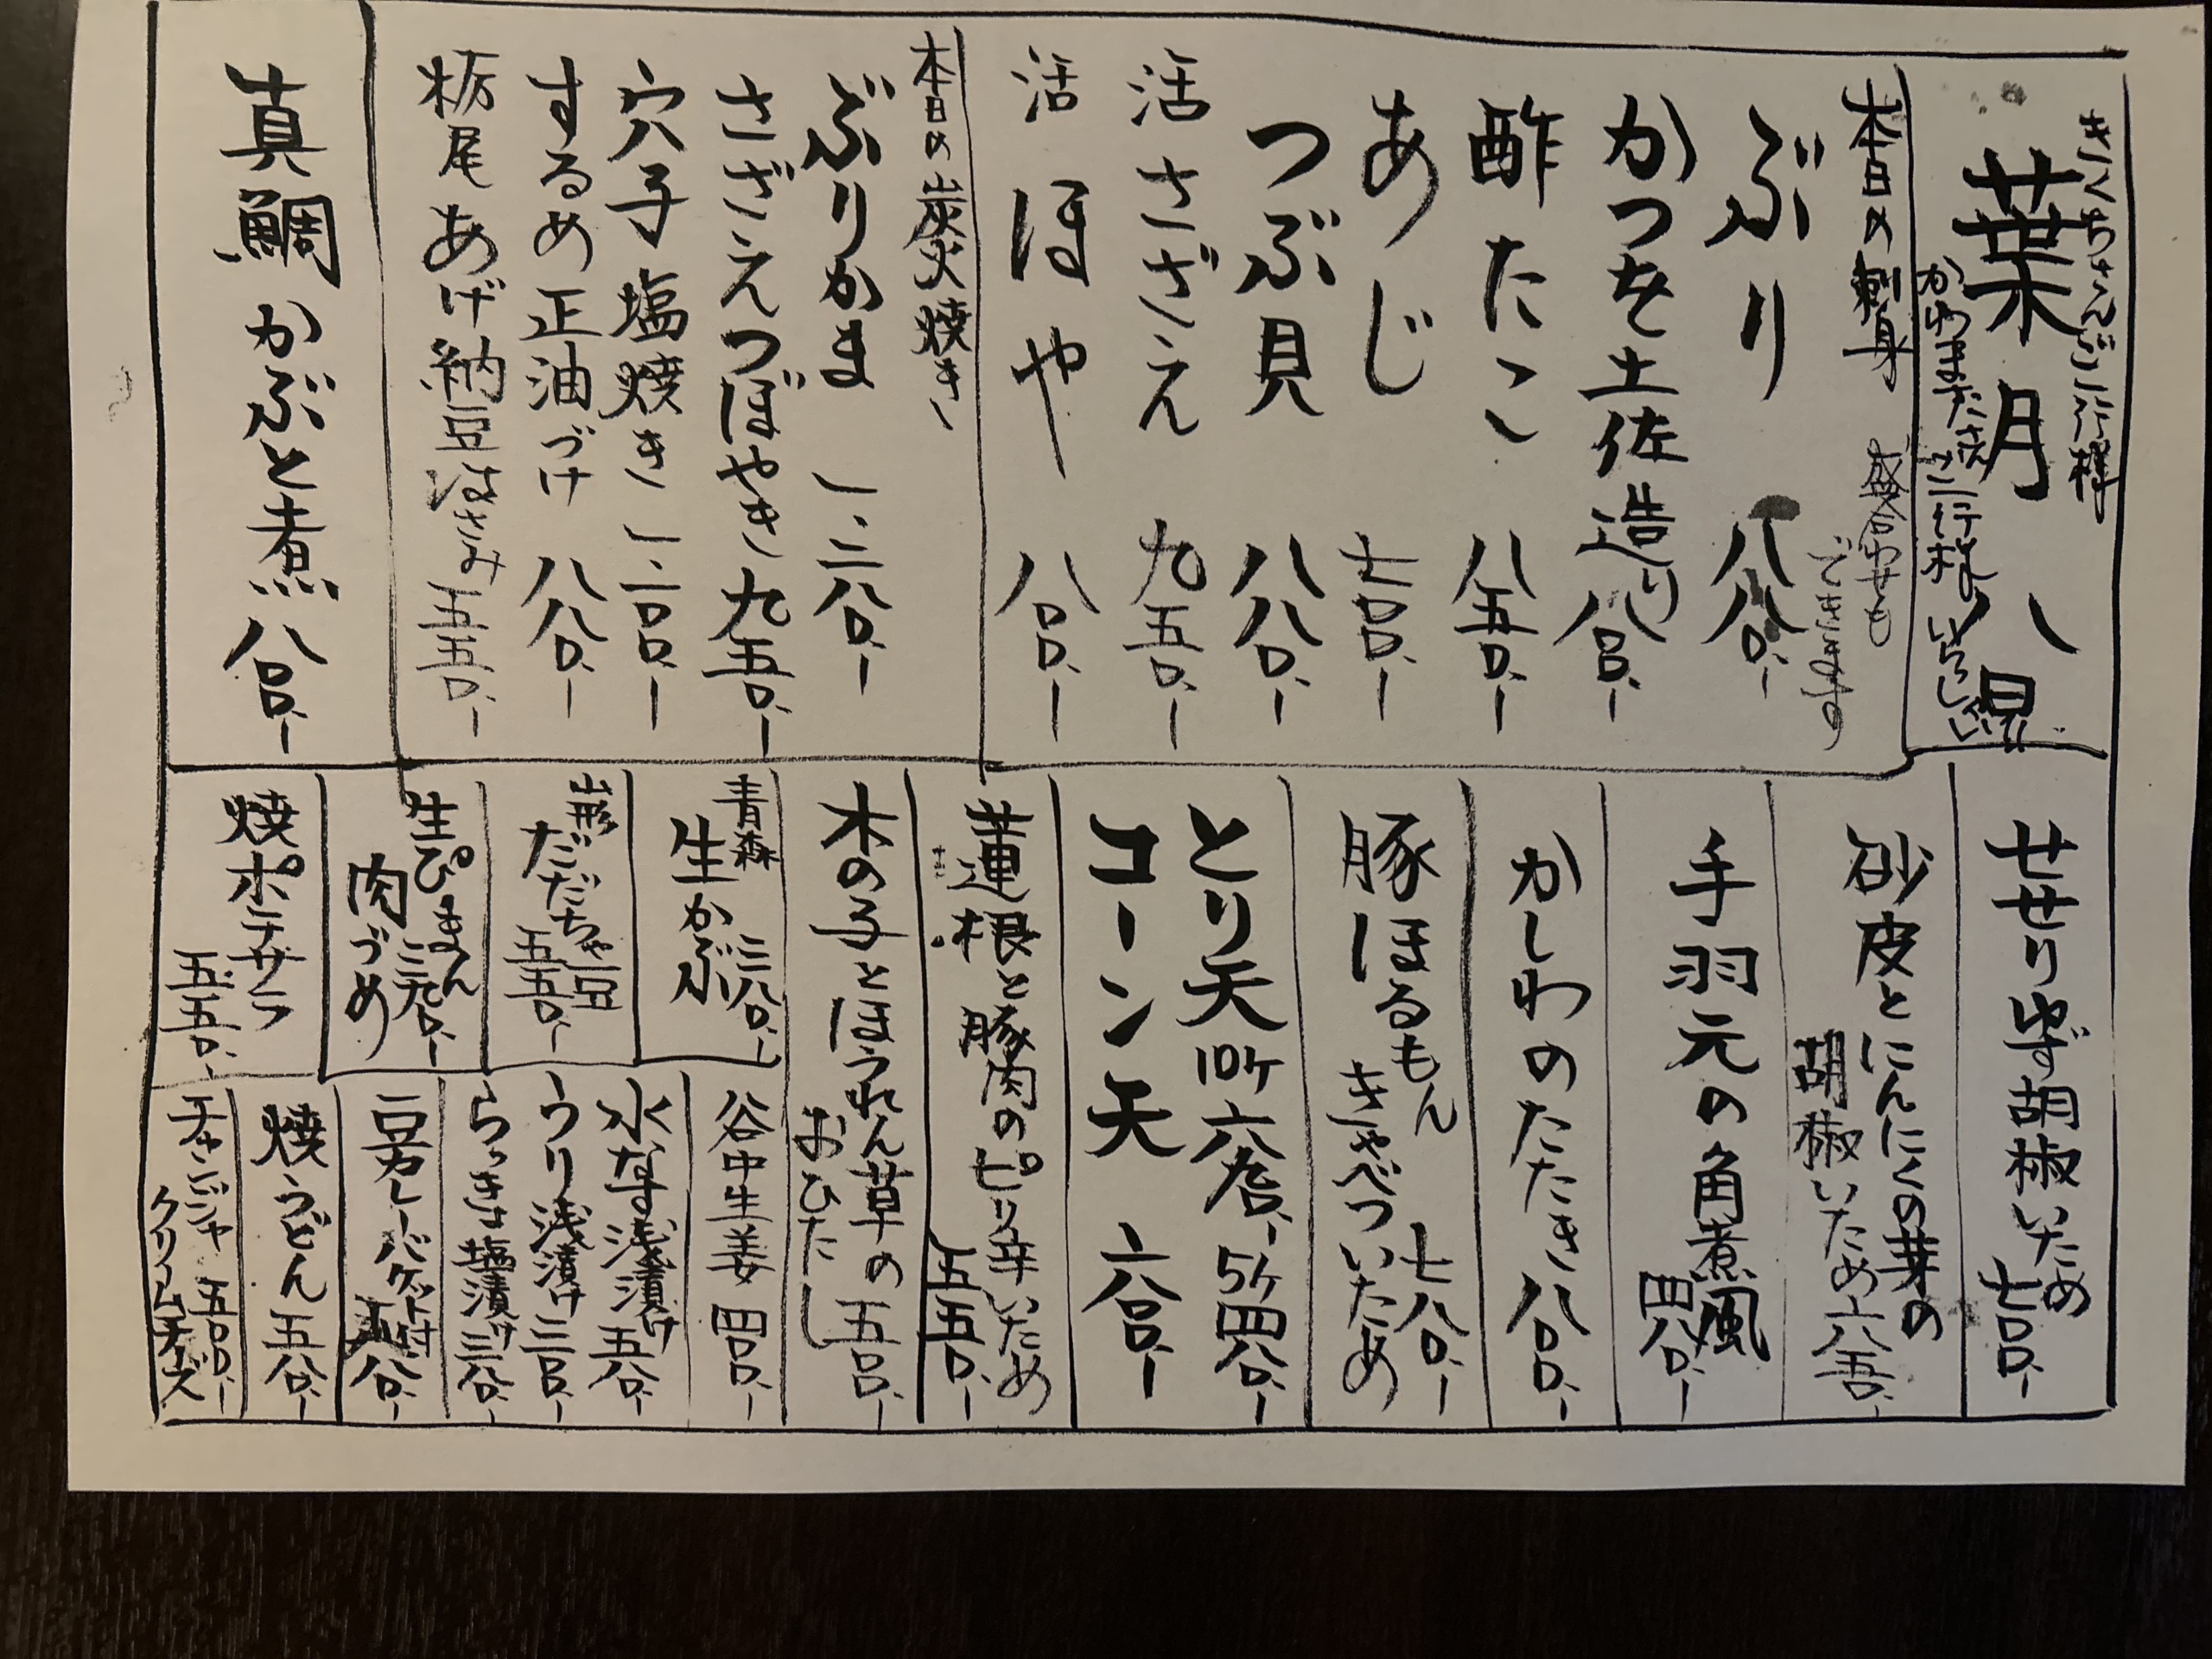 きくちさんご一行様
葉月八日
かわまたさんご一行様いらっしゃい
本日の刺身 盛合わせも
できます
ぶり 八八〇、ー
かつを土佐造り 八八〇、ー
酢たこ 八五〇、ー
あじ 七〇〇、ー
つぶ貝 八八〇、ー
活さざえ 九五〇、ー
活ほや 八〇〇、ー
本日の炭火焼き
ぶりかま 一、二八〇、ー
さざえつぼやき 九五〇、ー
穴子塩焼き 一、一〇〇、ー
するめ正油づけ 八八〇、ー
栃尾あげ納豆はさみ 五五〇、ー
真鯛かぶと煮 八八〇、ー
せせりゆず胡椒いため
七〇〇、ー
砂皮とにんにくの芽の
胡椒いため 六八〇、ー
手羽元の角煮風
四八〇、ー
かしわのたたき 八八〇、ー
豚ほるもん 七八〇、ー
きゃべついため
とり天 10ケ 六八〇、ー 5ケ 四八〇、ー
コーン天 六八〇、ー
蓮根と豚肉のピリ辛いため
五五〇、ー
木の子とほうれん草の 五〇〇、ー
おひたし
青森
生かぶ 三八〇、ー
谷中生姜 四〇〇、ー
山形
だだちゃ豆
五五〇、ー
水なす浅漬け 五八〇、ー
うり浅漬け 三〇〇、ー
らっきょ塩漬け 三八〇、ー
生ぴーまん
肉づめ
豆カレーバケット付
焼ポテサラ
五五〇、ー
焼うどん 五八〇、ー
チャンジャ 五〇〇、ー
クリームチーズ